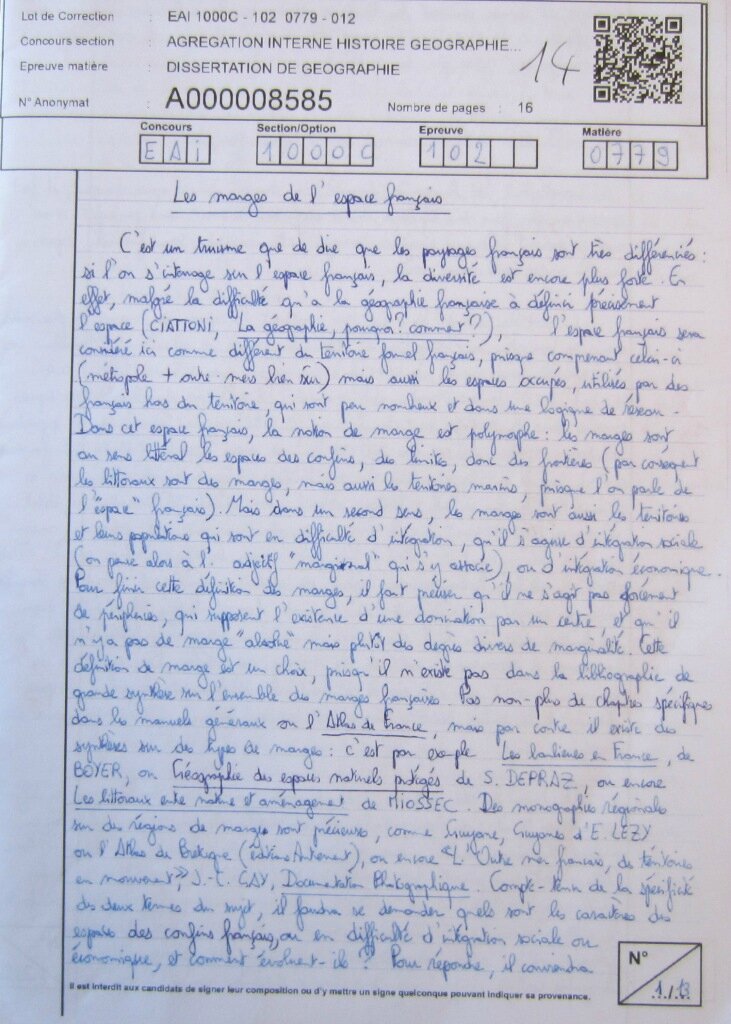 Lot de Correction : EAI 1000C - 102 0779 - 012
Concours section : AGREGATION INTERNE HISTOIRE GEOGRAPHIE...
Epreuve matière : DISSERTATION DE GEOGRAPHIE
N° Anonymat : A000008585 Nombre de pages : 16
14
Concours Section/Option Epreuve Matière
EAi 1000C 102 0779
Les marges de l'espace français
C'est un truisme que de dire que les paysages français sont très différenciés :
si l'on s'interroge sur l'espace français, la diversité est encore plus forte. En
effet, malgré la difficulté qu'a la géographie française à définir précisément
l'espace (CIATTONI, La géographie, pourquoi? comment?), l'espace français sera
considéré ici comme différent du territoire formel français, puisque comprenant celui-ci
(métropole + outre-mers bien sûr) mais aussi les espaces occupés, utilisés par des
français hors du territoire, qui sont peu nombreux et dans une logique de réseau.
Dans cet espace français, la notion de marge est polymorphe : les marges sont
au sens littéral les espaces des confins, des limites, donc des frontières (par conséquent
les littoraux sont des marges, mais aussi les territoires marins, puisque l'on parle de
l'"espace" français). Mais dans un second sens, les marges sont aussi les territoires
et leurs populations qui sont en difficulté d'intégration, qu'il s'agisse d'intégration sociale
(on pense alors à l' adjectif "marginal" qui s'y associe), ou d'intégration économique.
Pour finir cette définition des marges, il faut préciser qu'il ne s'agit pas forcément
de périphéries, qui supposent l'existence d'une domination par un centre, et qu'il
n'y a pas de marge "absolue" mais plutôt des degrés divers de marginalité. Cette
définition de marge est un choix, puisqu'il n'existe pas dans la bibliographie de
grande synthèse sur l'ensemble des marges françaises. Pas non-plus de chapitres spécifiques
dans les manuels généraux ou l'Atlas de France, mais par contre il existe des
synthèses sur des types de marges : c'est par exemple Les banlieues en France, de
BOYER, ou Géographie des espaces naturels protégés de S. DEPRAZ, ou encore
Les littoraux entre nature et aménagement de MIOSSEC. Des monographies régionales
sur des régions de marges sont précieuses, comme Guyane, Guyanes d'E. LEZY
ou l'Atlas de Bretagne (éditions Autrement), ou encore "L'Outre mer français, des territoires
en mouvement", J.-C. GAY, Documentation Photographique. Compte-tenu de la spécificité
des deux termes du sujet, il faudra se demander quels sont les caractères des
espaces des confins français, ou en difficulté d'intégration sociale ou
économique, et comment évoluent-ils ? Pour répondre, il conviendra
Il est interdit aux candidats de signer leur composition ou d'y mettre un signe quelconque pouvant indiquer sa provenance.
N°
1/13